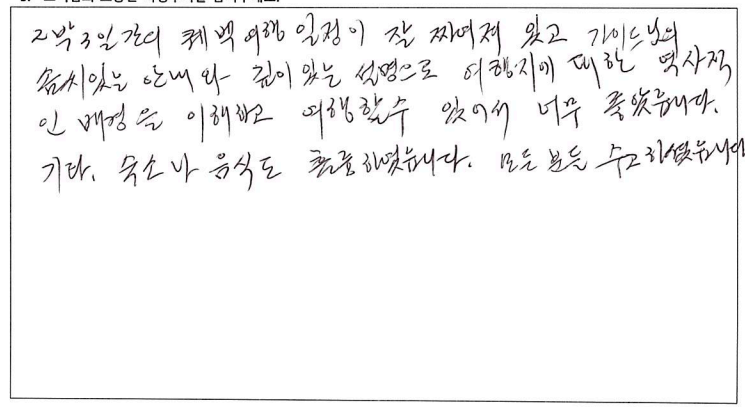 2박3일간의 퀘백 여행 일정이 잘 짜여져 있고 가이드님의
솜씨있는 안내와 깊이 있는 설명으로 여행지에 대한 역사적
인 배경을 이해하고 여행할수 있어서 너무 좋았습니다.
기타. 숙소나 음식도 훌륭하였습니다. 모든 분들 수고하셨습니다